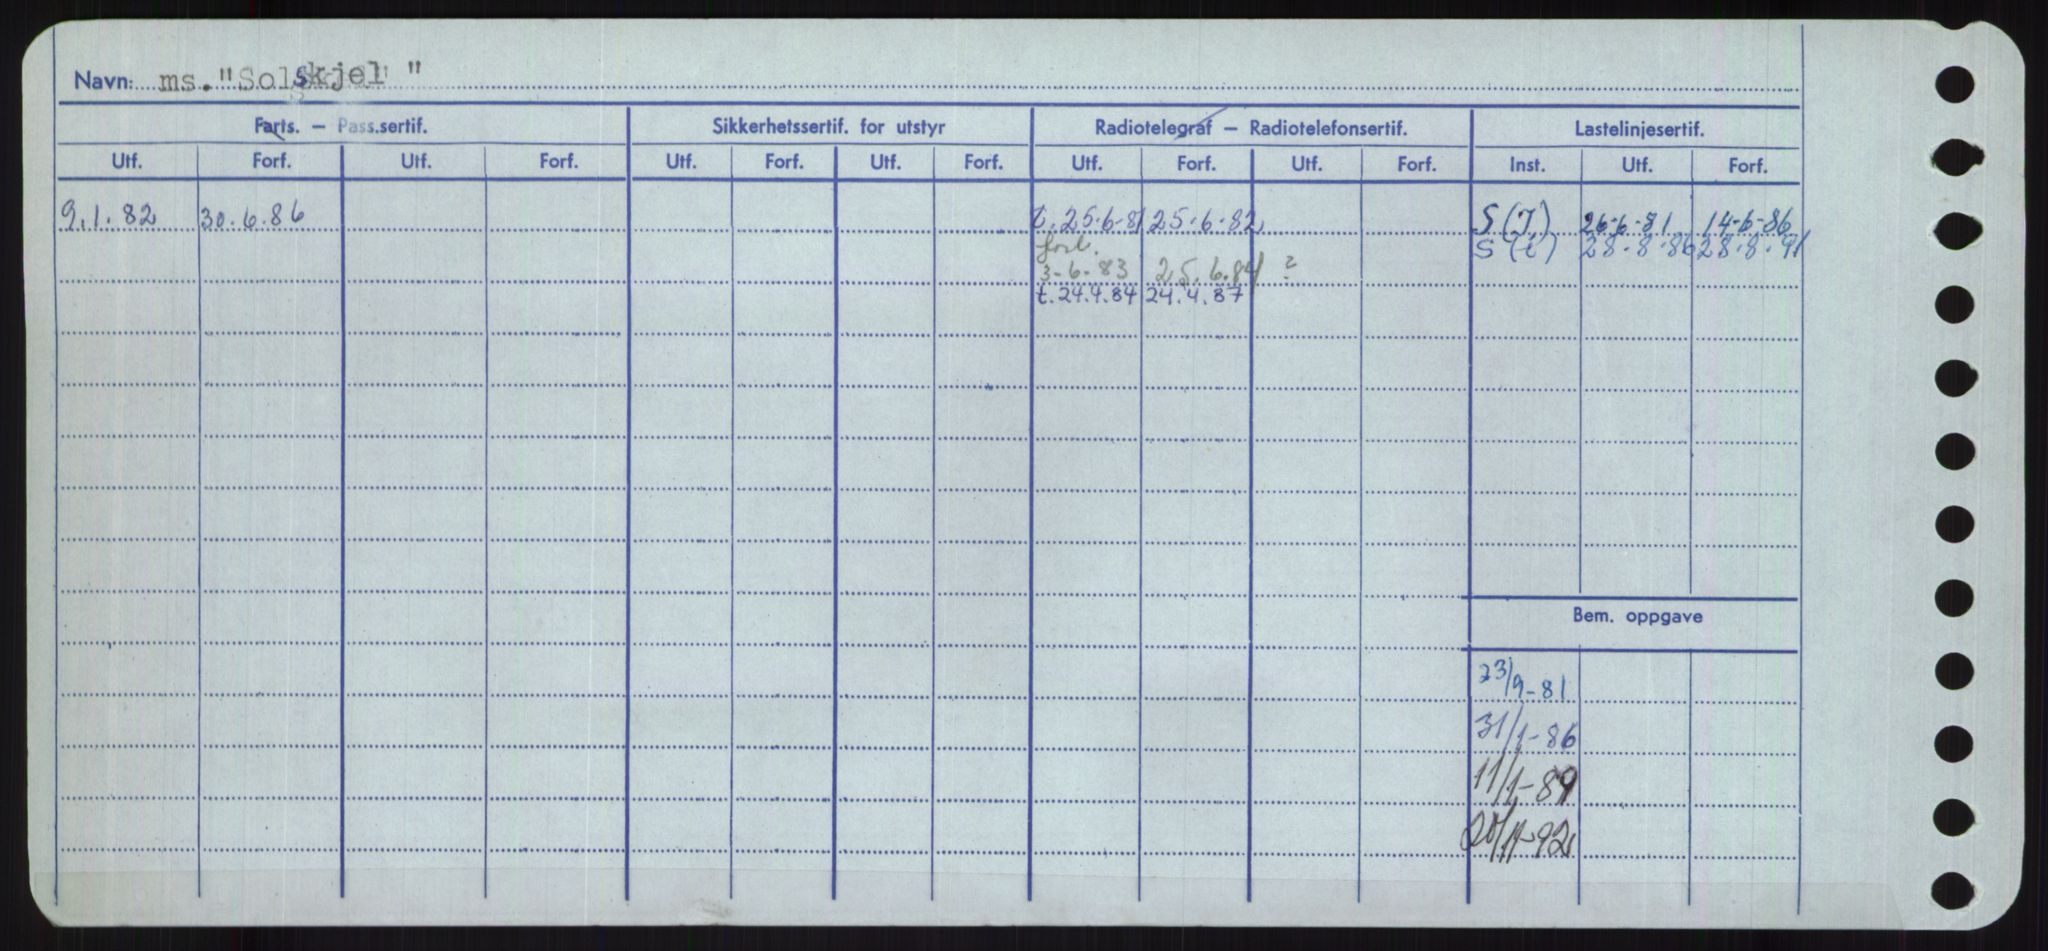 Navn: ms. "Solskjel"
Farts. — Pass.sertif. Sikkerhetssertif. for utstyr Radiotelegraf — Radiotelefonsertif. Lastelinjesertif.
Utf. Forf. Utf. Forf. Utf. Forf. Utf. Forf. Utf. Forf. Utf. Forf. Inst. Utf. Forf.
9.1.82 30.6.86 t. 25.6-81 25.6.82 S (I) 26.6-81 14-6-86
forl. S (i) 28.8.86 28.8.91
3-6.83 25.6.84 ?
t. 24.4.84 24.4.87
Bem. oppgave
23/9-81
31/1-86
11/1-89
20/11-92